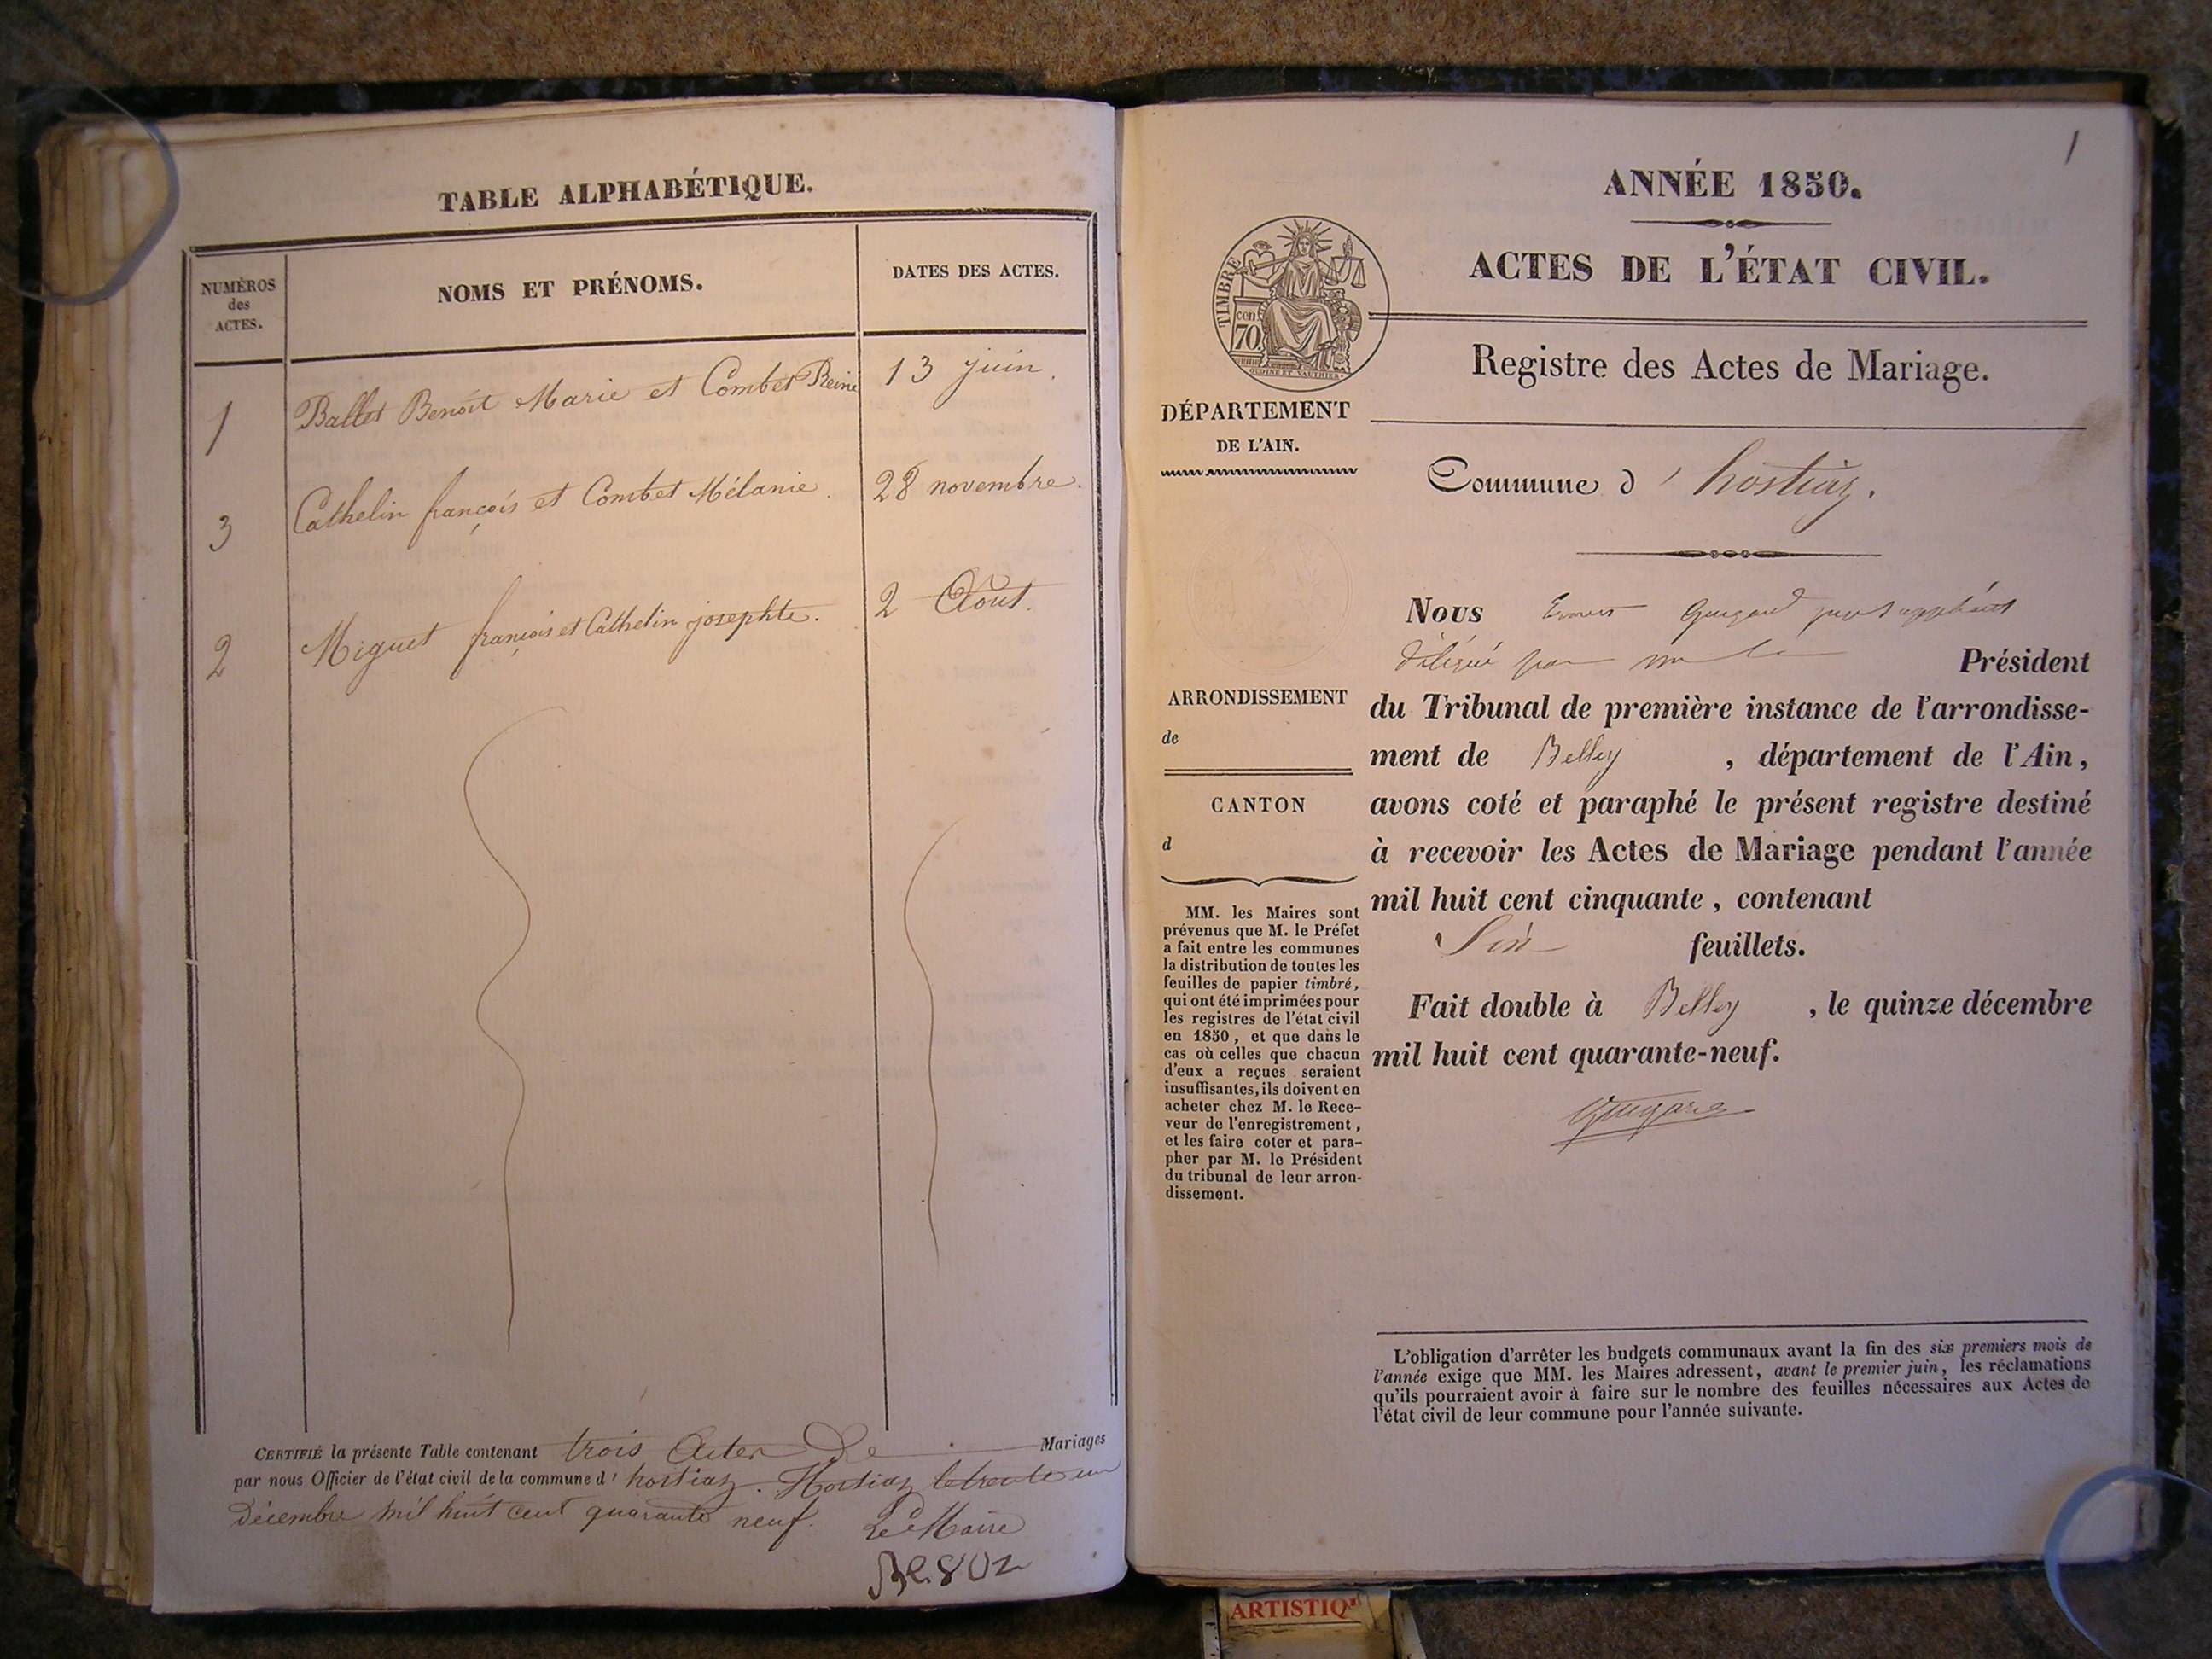 TABLE ALPHABÉTIQUE.
NUMÉROS
des
ACTES.
NOMS ET PRÉNOMS.
DATES DES ACTES.
1 Ballet Benoit Marie et Combet Reine 13 juin.
3 Cathelin françois et Combet Mélanie. 28 novembre.
2 Miguet françois et Cathelin josephte. 2 Août.
CERTIFIÉ la présente Table contenant trois Actes De Mariages
par nous Officier de l'état civil de la commune d' hostiaz. Hostiaz le trente un
Décembre mil huit cent quarante neuf. Le Maire
1
ANNÉE 1850.
ACTES DE L'ÉTAT CIVIL.
TIMBRE
cen
70.
OUDINE ET VAUTHIER
Registre des Actes de Mariage.
DÉPARTEMENT
DE L'AIN.
Commune d' hostiaz.
ARRONDISSEMENT
de
CANTON
d
MM. les Maires sont
prévenus que M. le Préfet
a fait entre les communes
la distribution de toutes les
feuilles de papier timbré,
qui ont été imprimées pour
les registres de l'état civil
en 1850, et que dans le
cas où celles que chacun
d'eux a reçues seraient
insuffisantes, ils doivent en
acheter chez M. le Rece-
veur de l'enregistrement,
et les faire coter et para-
pher par M. le Président
du tribunal de leur arron-
dissement.
Nous juge suppléant
délégué par Président
du Tribunal de première instance de l'arrondisse-
ment de Belley , département de l'Ain,
avons coté et paraphé le présent registre destiné
à recevoir les Actes de Mariage pendant l'année
mil huit cent cinquante, contenant
feuillets.
Fait double à Belley , le quinze décembre
mil huit cent quarante-neuf.
L'obligation d'arrêter les budgets communaux avant la fin des six premiers mois de
l'année exige que MM. les Maires adressent, avant le premier juin, les réclamations
qu'ils pourraient avoir à faire sur le nombre des feuilles nécessaires aux Actes de
l'état civil de leur commune pour l'année suivante.
ARTISTIQ